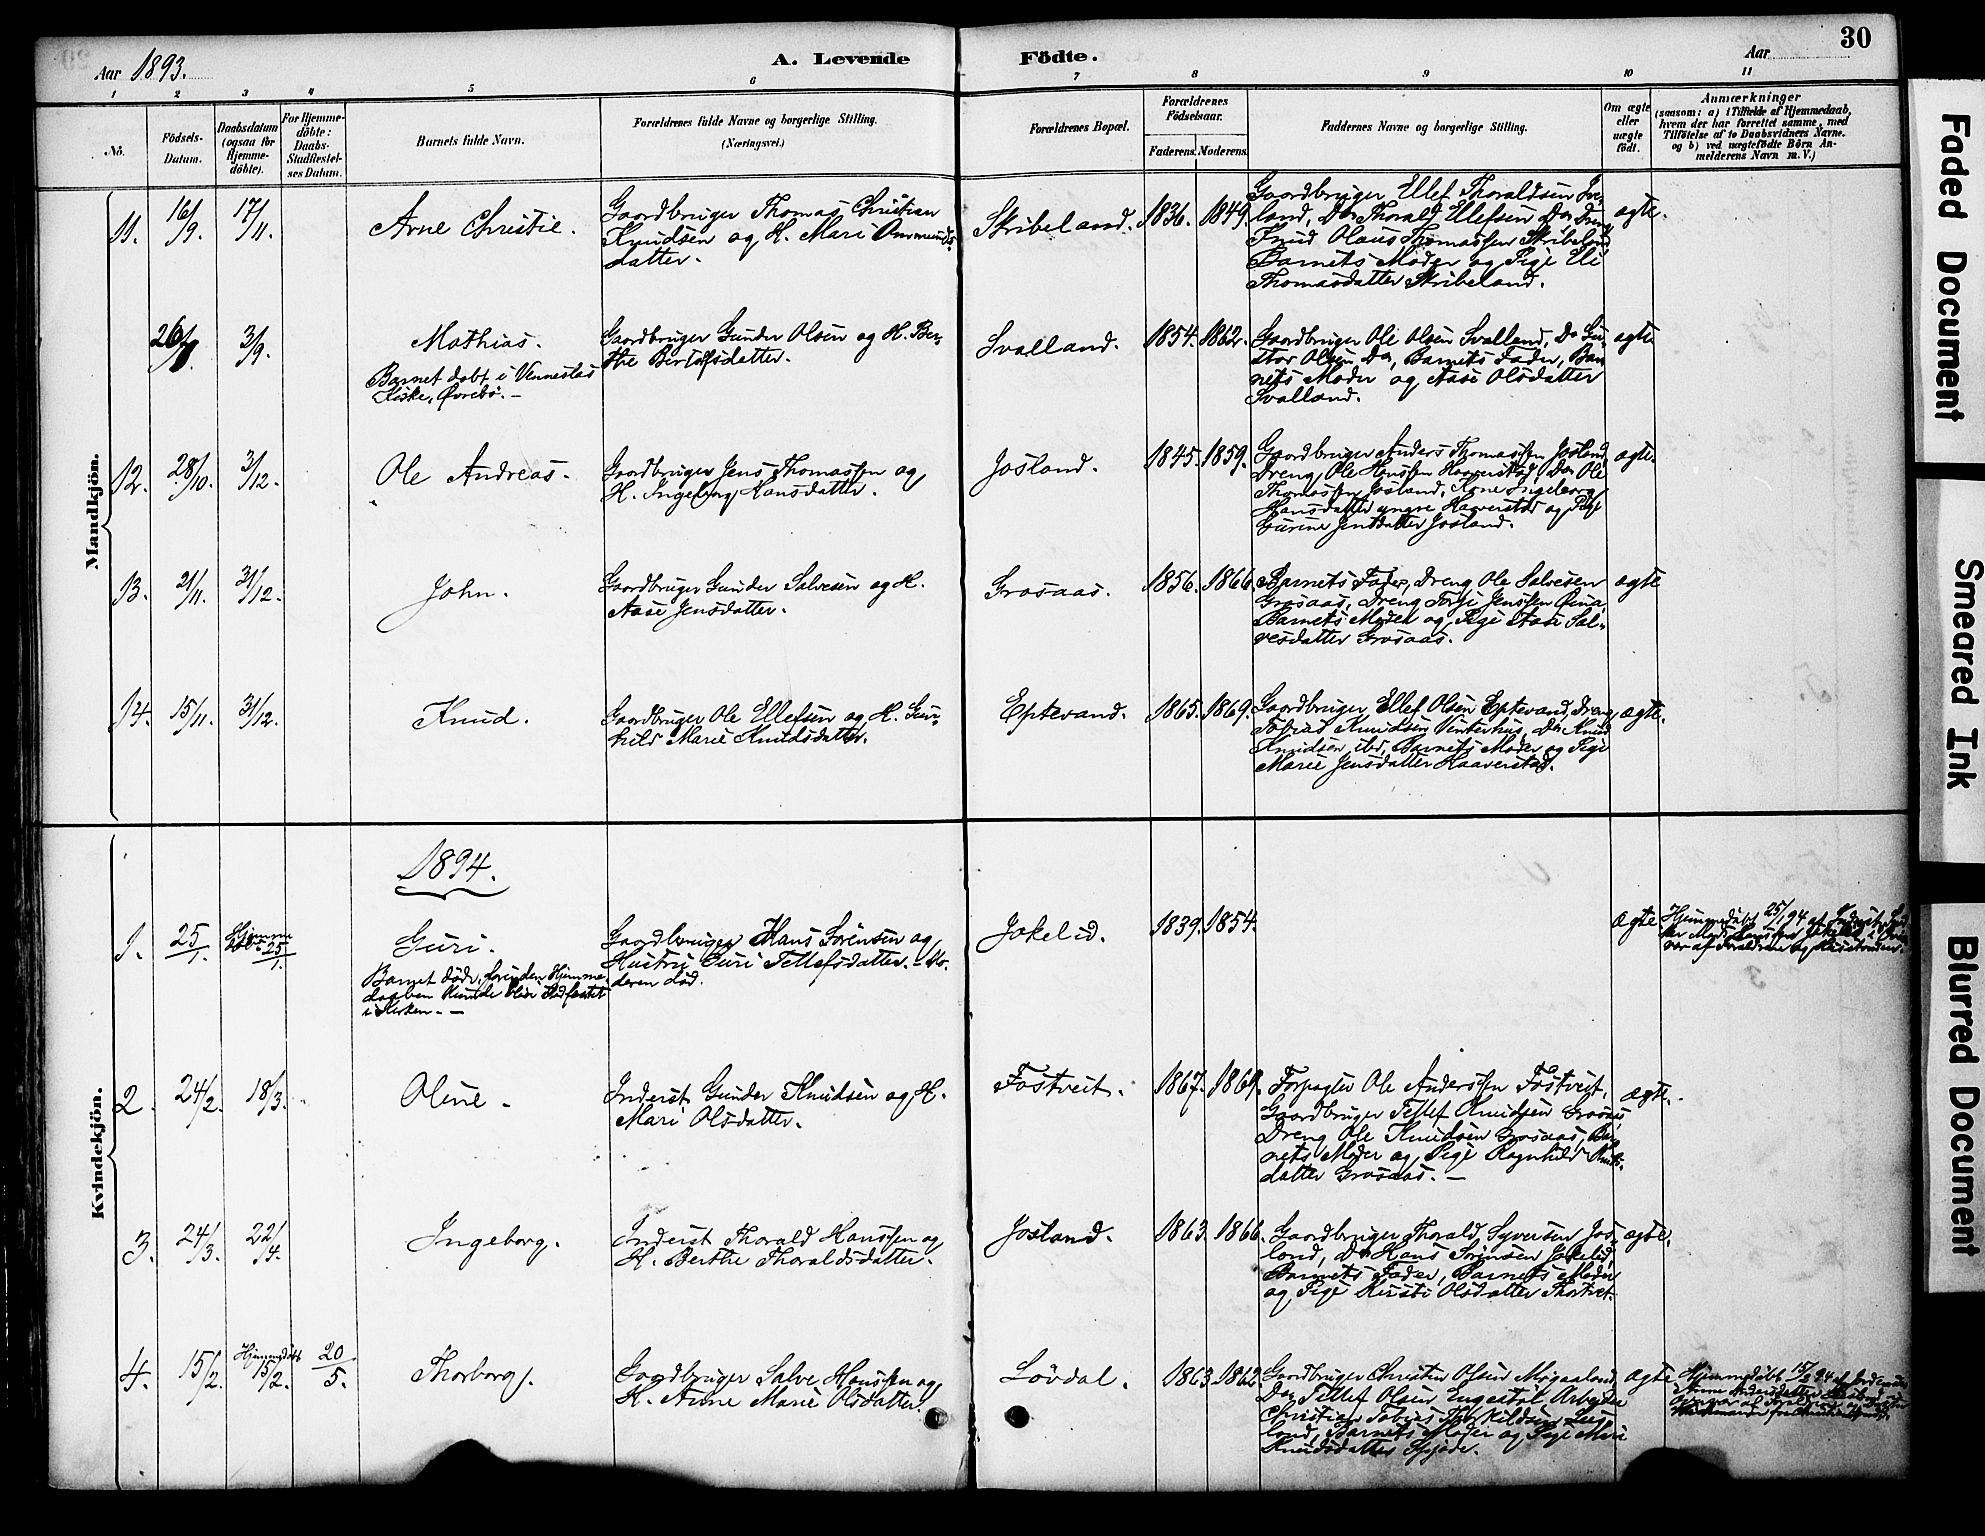 30
Aar 1893.
A. Levende Födte.
Aar
1 2 3 4 5 6 7 8 9 10 11
Nö.
Födsels-Datum.
Daabsdatum (ogsaa for Hjemme-döbte).
For Hjemme-döbte: Daabs-Stadfæstel-ses Datum.
Barnets fulde Navn.
Forældrenes fulde Navne og borgerlige Stilling.
(Næringsvei.)
Forældrenes Bopæl.
Forældrenes Födselsaar.
Faderens. Moderens.
Faddernes Navne og borgerlige Stilling.
Om ægte eller uægte födt.
Anmærkninger
(saasom: a) i Tilfælde af Hjemmedaab,
hvem der har forrettet samme, med
Tilföielse af to Daabsvidners Navne.
og b) ved uægtefödte Börn An-
melderens Navn m. V.)
Mandkjön.
11. 16/9. 17/11. Arne Christie.
Gaardbruger Thomas Christian
Knudsen og H. Mari Ommunds-
datter.
Skribeland. 1836. 1849.
Gaardbruger Ellef Thoraldsen
land, Do Thorald Ellefsen Do Dreng
Knud Olaus Thomassen Skribeland
Barnets Moder og Pige Eli
Thomasdatter Skribeland.
ægte.
26/ 3/9. Mathias.
Barnet døbt i Vennesla
Kirke, Øvrebø. -
Gaardbruger Gunder Olsen og H. Ber-
the Bertelsdatter.
Svalland. 1854. 1862.
Gaardbruger Ole Olsen Svalland, Do Gu-
stav Olsen Do, Barnets Fader, Bar-
nets Moder og Aase Olsdatter
Svalland.
ægte
12. 28/10. 3/12. Ole Andreas.
Gaardbruger Jens Thomassen og
H. Ingeborg Hansdatter.
Josland. 1845. 1859.
Gaardbruger Anders Thomassen Josland
Dreng Ole Hanssen Haaverstad, Do Ole
Thomassen Josland, Kone Ingeborg
Hansdatter yngre Haaverstad og Pige
Gurine Jensdatter Josland.
ægte.
13. 21/11. 31/12. John.
Gaardbruger Gunder Salvesen og H.
Aase Jensdatter.
Grosaas. 1856. 1866.
Barnets Fader, Dreng Ole Salvesen
Grosaas, Dreng Torje Jenssen
Barnets Moder og Pige Aase Sal-
vesdatter Grosaas.
ægte
14. 15/11. 31/12. Knud.
Gaardbruger Ole Ellefsen og H. Gun-
hild Marie Knudsdatter.
Eptevand. 1865. 1869.
Gaardbruger Ellef Olsen Eptevand, Dreng
Tobias Knudsen Vinterhus, Do Knud
Knudsen ibd, Barnets Moder og Pige
Marie Jensdatter Haaverstad.
ægte.
1894.
Kvindekjön.
1. 25/1. Hjemme
døbt 25/1. Guri.
Barnet døde, forinden Hjemme-
daaben kunde blive stadfæstet
i Kirken. -
Gaardbruger Hans Sørensen og
Hustru Guri Tellefsdatter. - Mo-
deren død.
Jokelid. 1839. 1854.
ægte
Hjemmedøbt 25/1 94 af
af Forældrene og
2. 24/2. 18/3. Oline -
Inderst Gunder Knudsen og H.
Mari Olsdatter.
Fostveit. 1867. 1869.
Forpagter Ole Anderssen Fostveit,
Gaardbruger Tellef Knudsen Grosaas,
Dreng Ole Knudsen Grosaas, Bar-
nets Moder og Pige Ragnhild Knuds-
datter Grosaas. -
ægte.
3. 24/3. 22/4. Ingeborg.
Inderst Thorald Hanssen og
H. Berthe Thoraldsdatter.
Josland. 1863. 1866.
Gaardbruger Thorald Syversen Jos-
land, Do Hans Sørensen Jokelid,
Barnets Fader, Barnets Moder
og Pige Kirsti Olsdatter
ægte.
4. 15/2. Hjemmedøbt
15/2. 20/5. Thorborg.
Gaardbruger Salve Hanssen og
H. Anne Marie Olsdatter.
Løvdal. 1863. 1862.
Gaardbruger Christen Olsen
Do Tellef Olsen Engestøl, Arbeider
Christian Tobias Thorkildsen
land, Barnets Moder og Pige Mari
Knudsdatter
ægte
Hjemmedøbt 15/2 94 af
Anne Andersdatter
Faded Document
Smeared Ink
Blurred Document